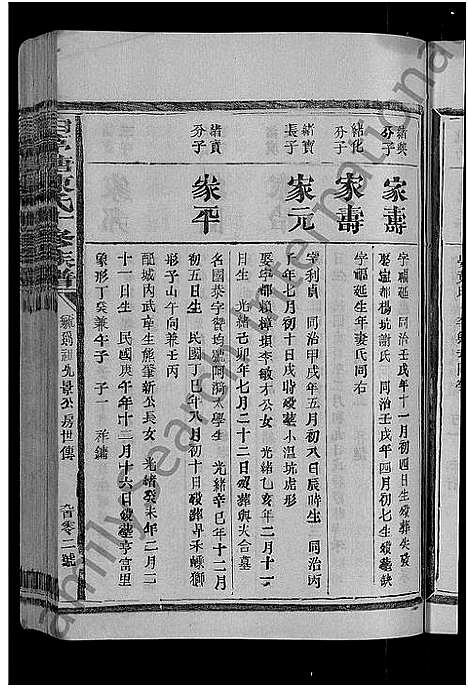 緒興
次子
家壽
字福延 同治壬戌年十一月初四日生歿葬失錄
娶寧都楊坑謝氏 同治壬戌年四月初七生歿葬缺
緒化
次子
家壽
字福延生年妻氏同右
緒寶
長子
家元
字利貞 同治甲戌年五月初八日辰時生 同治丙
子年七月初十日戌時歿葬小溫坑虎形
娶寧都賴璋壩李敏才公女 光緒乙亥年二月十一
日生 光緒己卯年七月二十二日歿葬與夫合墓
緒寶
次子
家平
名國泰字贊均 大學生 光緒辛巳年十二月
初五日生 民國丁巳年八月初十日歿葬 獅
形子山午向兼壬丙
配城內武庠生熊肇新公長女 光緒癸未年二月二
十一日生 民國庚午年十二月十六日歿葬亭富里
象形丁癸兼午子 子一 祥鏞
陳氏十修族譜
景公房世傳
Family Search International